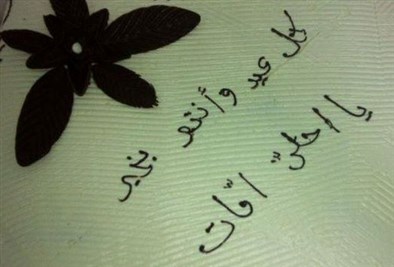 كل عيد وأنتم بخير
يا احلى أمّات